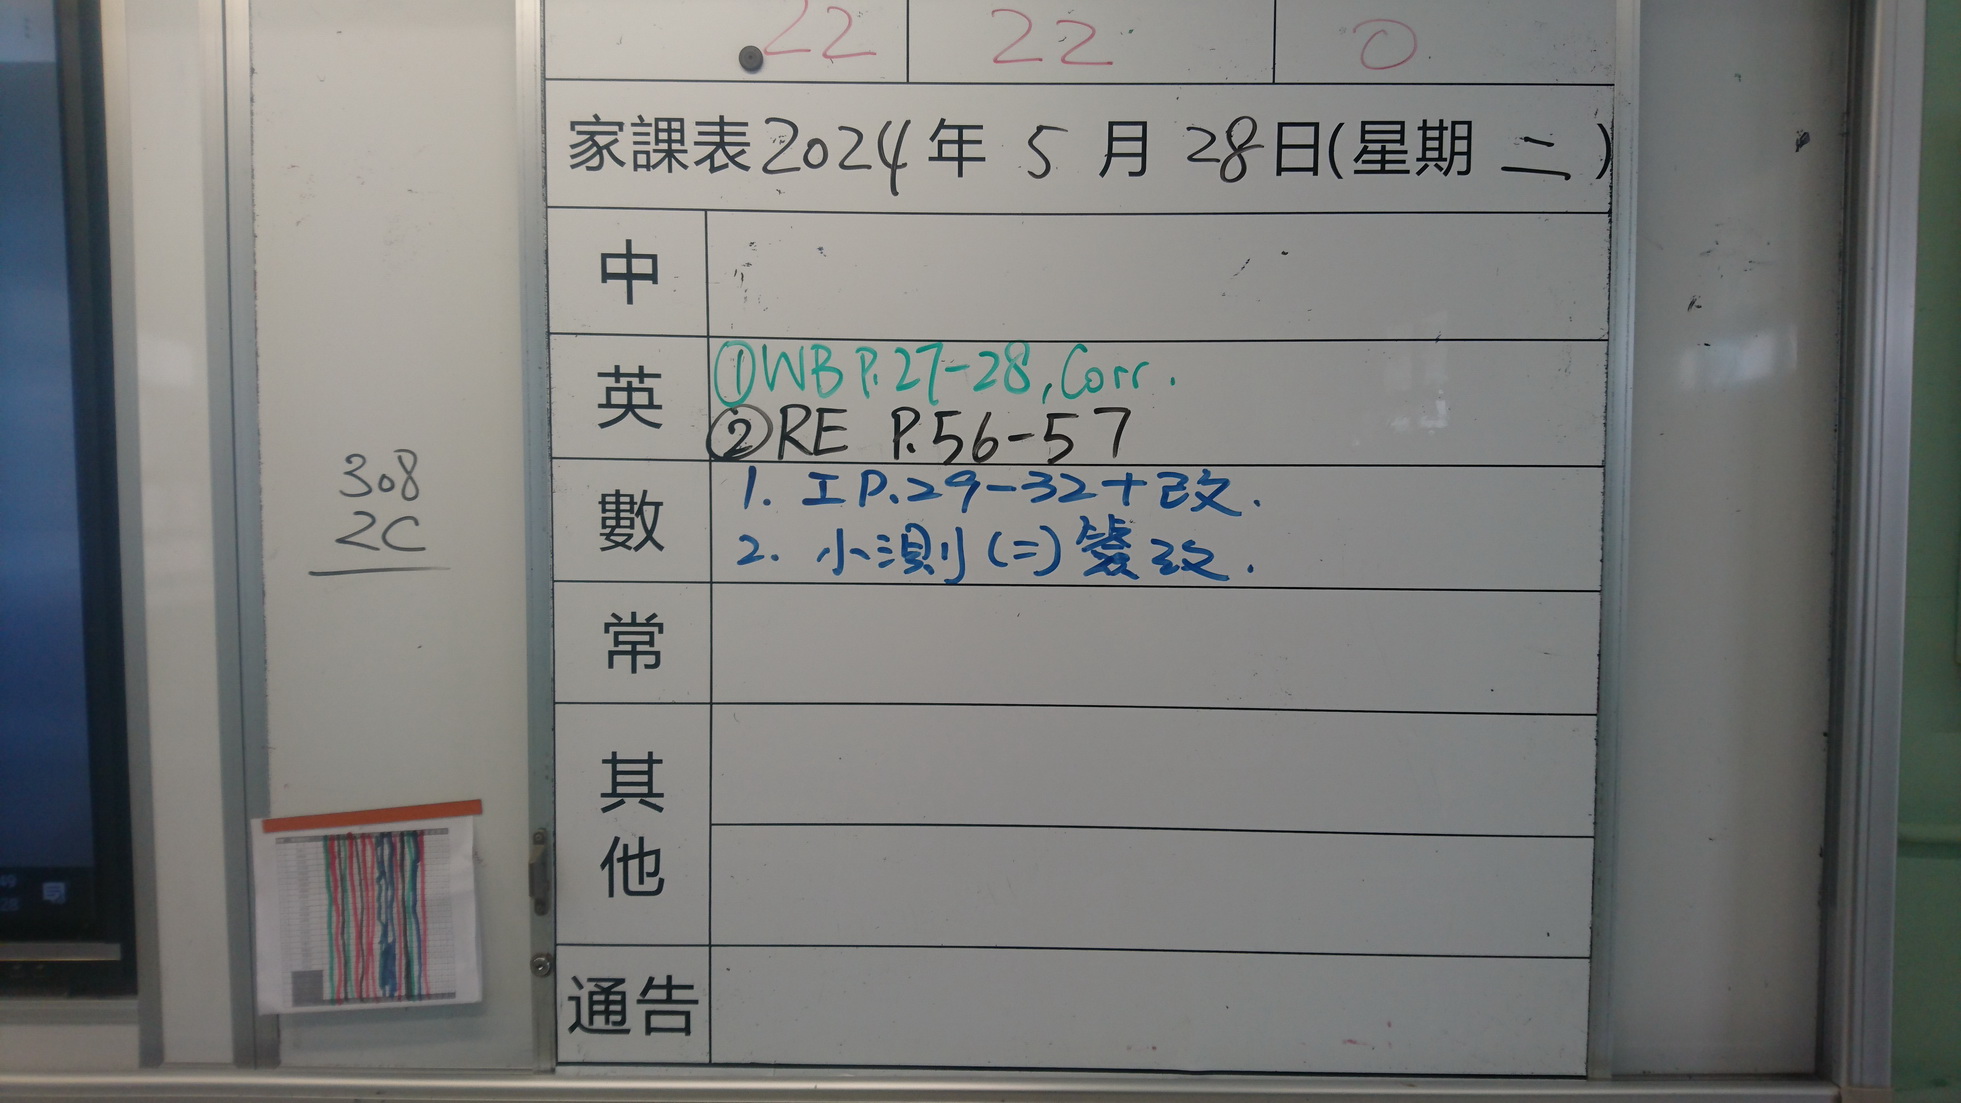 22 22 0
家課表 2024 年 5 月 28 日(星期 二)
中
英
①WB P.27-28, Corr.
②RE P.56-57
數
1. 工 P.29-32+改.
2. 小測(二)簽改.
常
其他
通告
308
2C